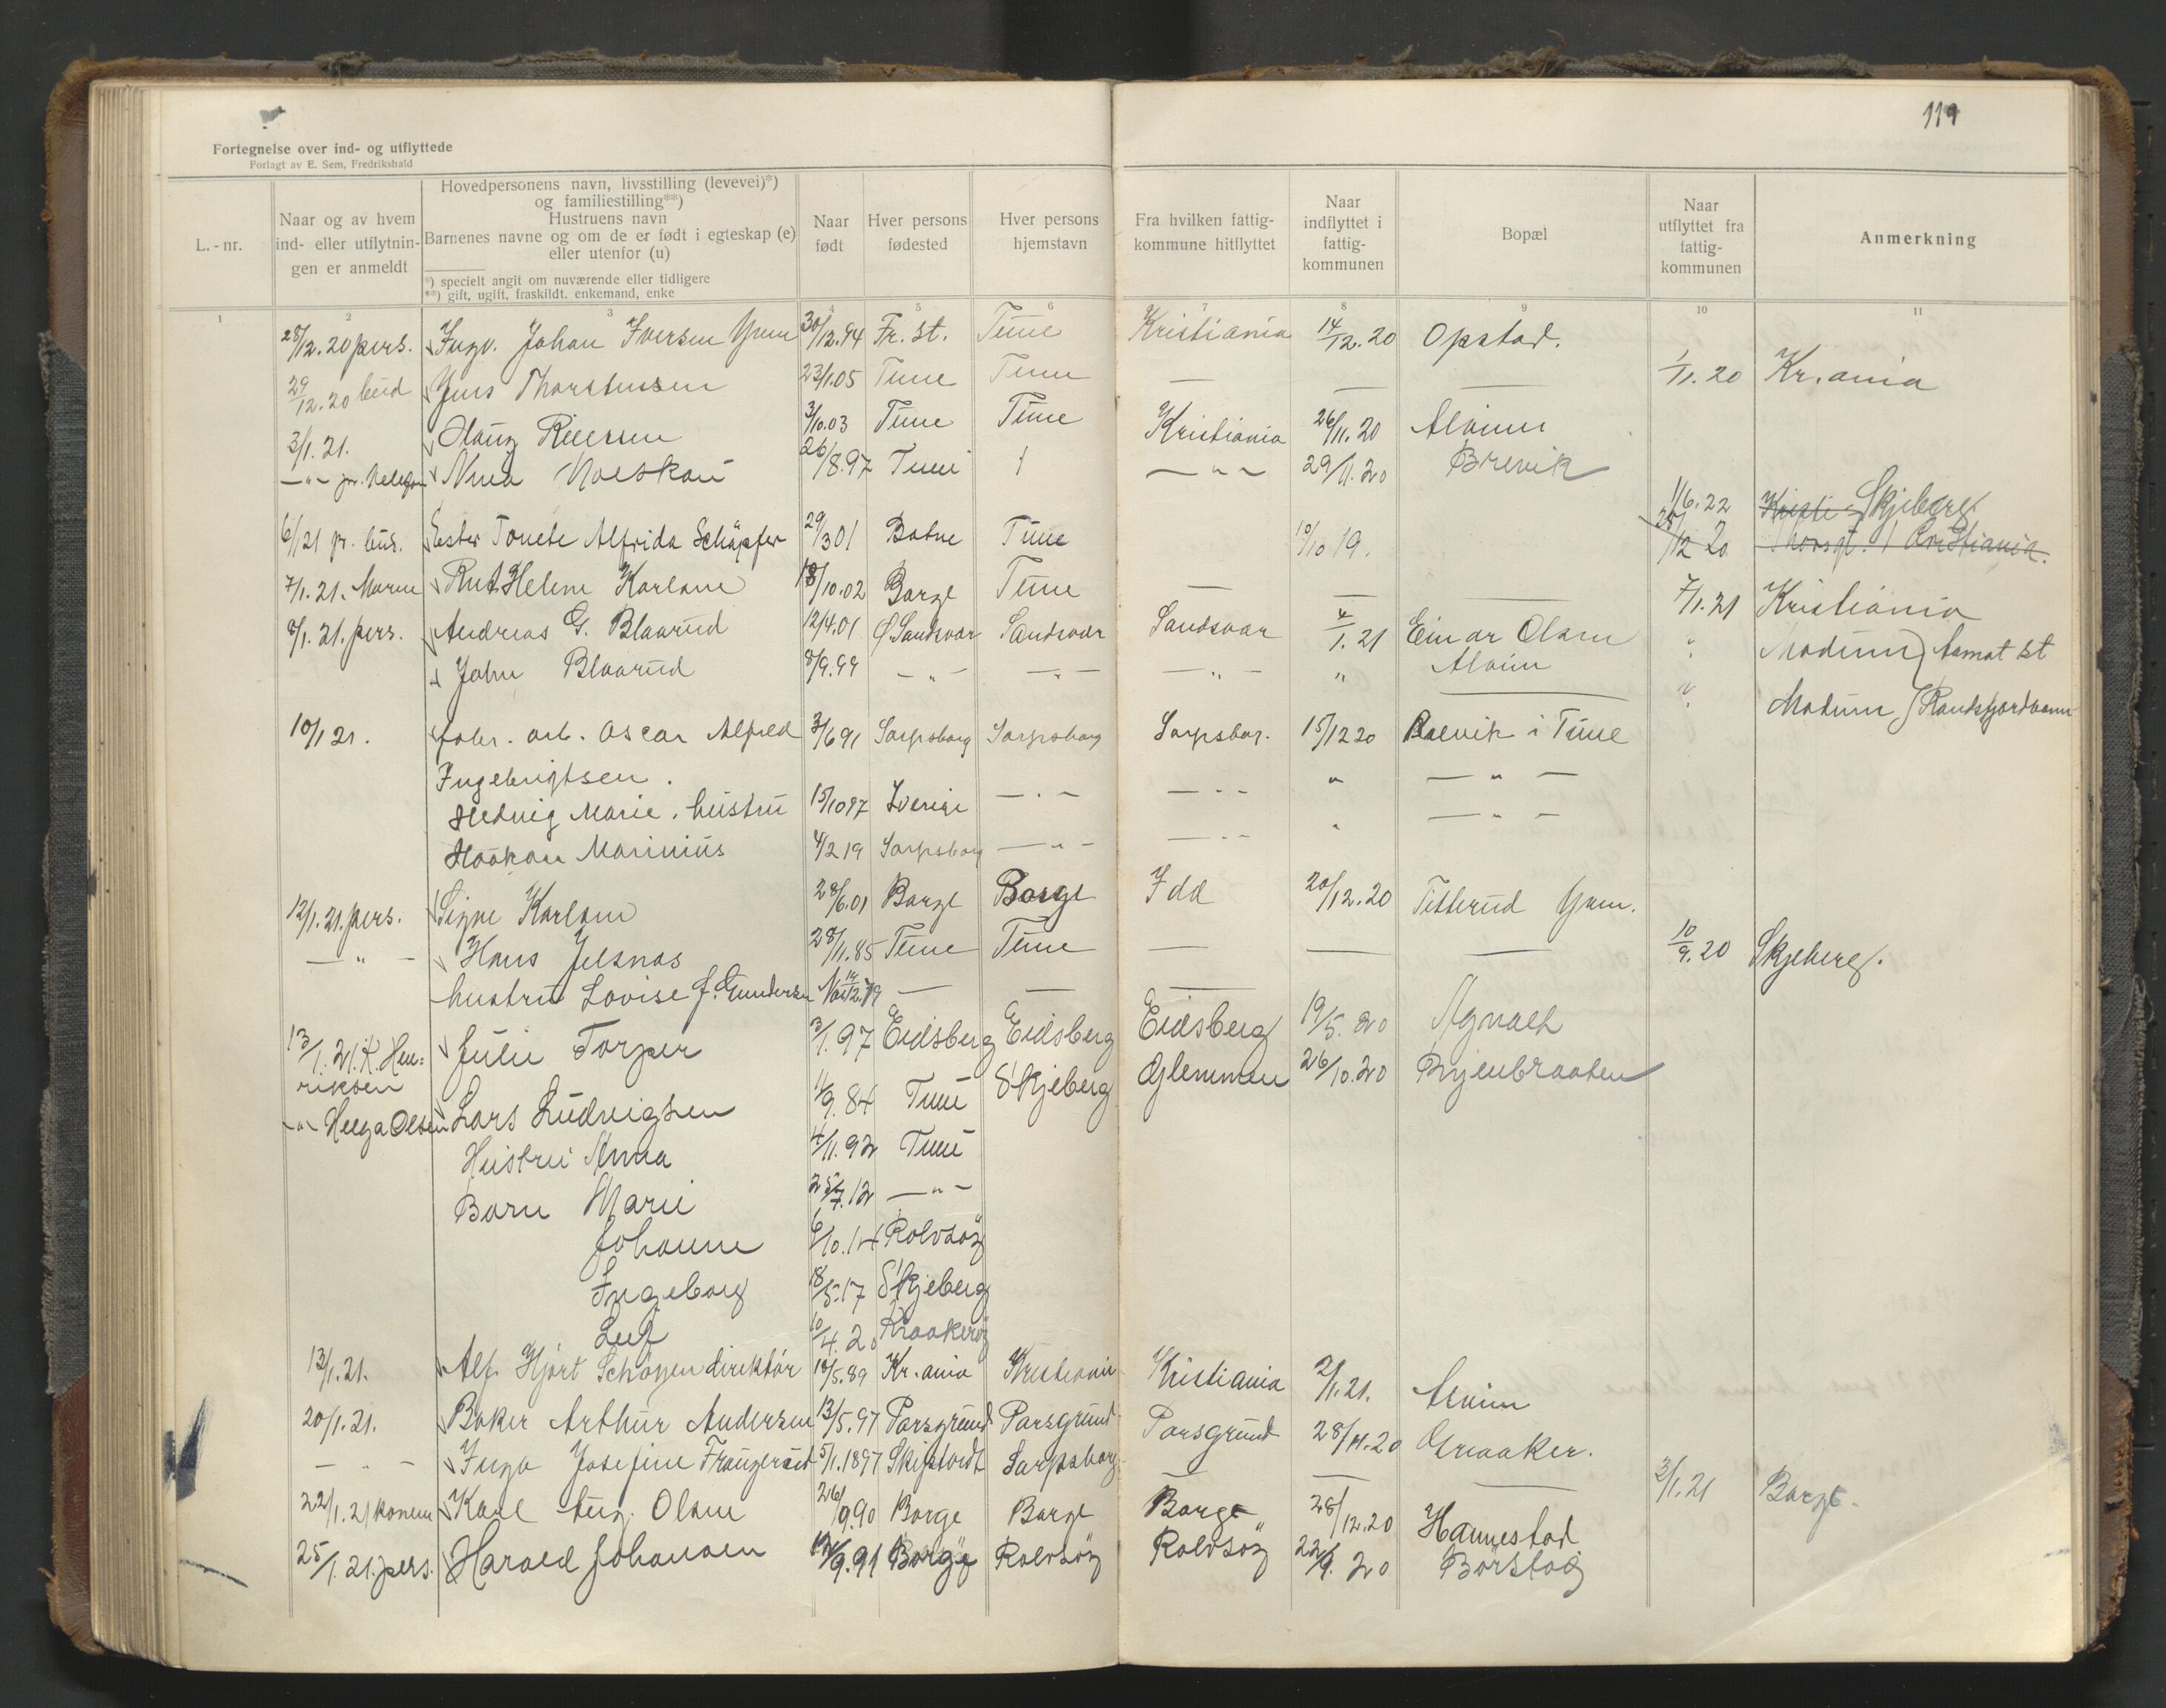 119
Fortegnelse over ind- og utflyttede
Forlagt av E. Sem, Fredrikshald
L.-nr.
Naar og av hvem
ind- eller utflytnin-
gen er anmeldt
Hovedpersonens navn, livsstilling (levevei)*)
og familiestilling**)
Hustruens navn
Barnenes navne og om de er født i egteskap (e)
eller utenfor (u)
*) specielt angit om nuværende eller tidligere
**) gift, ugift, fraskildt. enkemand, enke
Naar
født
Hver persons
fødested
Hver persons
hjemstavn
Fra hvilken fattig-
kommune hitflyttet
Naar
indflyttet i
fattig-
kommunen
Bopæl
Naar
utflyttet fra
fattig-
kommunen
Anmerkning
1 2 3 4 5 6 7 8 9 10 11
28/12.20 pers. Ingv. Johan Iversen Ynm 30/12.94 Fr.st. Tune Kristiania 14/12.20 Opstad.
29/12.20 bud Jens Thorstensen 23/1.05 Tune Tune — — — 1/11.20 Kr.ania
3/1.21. Haug Reiersen 3/10.03 Tune Tune Kristiania 26/11.20 Alvim
—"— pr. Nelson Nina Norskau 26/8.97 Tune 1 —"— 29/11.20 Brevik
1/6.22 Skjeberg
6/1 21 pr. bus. Ester Tonete Alfrida Schäpfer 29/3 01 Botne Tune 10/10 19. 28/12 20 Thorsgt. 1 Kristiania.
7/1.21. Marne Rut Helene Karlsen 18/10.02 Borge Tune — — — 7/1.21 Kristiania
8/1.21. pers. Andreas G. Blaarud 12/4.01 Ø. Sandsvær Sandsvær Sandsvær 4/1.21 Einar Olsen " Modum) Aamot st
John Blaarud 8/9.99 —"— —"— —"— " Alvim " Modum) Randsfjordbann
10/1 21. fabr. arb. Oscar Alfred 3/6 91 Sarpsborg Sarpsborg Sarpsbor. 15/12 20 Roevik i Tune
Ingebrigtsen. " —"—
Hedvig Marie. hustru 15/10 97 Sverige —"— —"— —"—
Haakon Marinius 4/2 19 Sarpsborg —"— —"—
12/1.21. pers. Signe Karlsen 28/6.01 Borge Borge Idd 20/12.20 Tetterud Ynm.
—"— Hans Jelsnæs 28/11.85 Tune Tune — — — 10/9.20 Skjeberg.
hustru Lovise f. Gundersen 14/12.79 — — —
13/1.21. K. Hen- Julie Torper 3/1.97 Eidsberg Eidsberg Eidsberg 19/5.20 Agnalt
riksen
—"— Helga Olsen Lars Ludvigsen 1/9.84 Tune Skjeberg Glemmen 26/10.20 Ryenbraaten
Hustru Anna 4/11.92 Tune
Barn Marie 25/7.12 —"—
Johanne 6/10.14 Rolvsöy
Ingeborg 18/5.17 Skjeberg
Leif 10/4.20 Kraakeröy
13/1.21. Alf Hjort Schöyen direktör 18/5.89 Kr.ania Kristiania Kristiania 2/1.21. Alvim
20/1.21. Baker Arthur Andersen 13/5.97 Porsgrund Porsgrund Porsgrund 28/11.20 Greaaker.
—"— Inga Josefine Haugerød 5/1.1897 Skiptvedt Sarpsborg — — — 3/1.21 Borge.
22/1.21 konen Karl Aug. Olsen 26/9.90 Borge Borge Borge 28/12.20 Hannestad
25/1.21. pers. Harald Johansen 19/9.91 Borge Rolvsöy Rolvsöy 22/9.20 Börstad